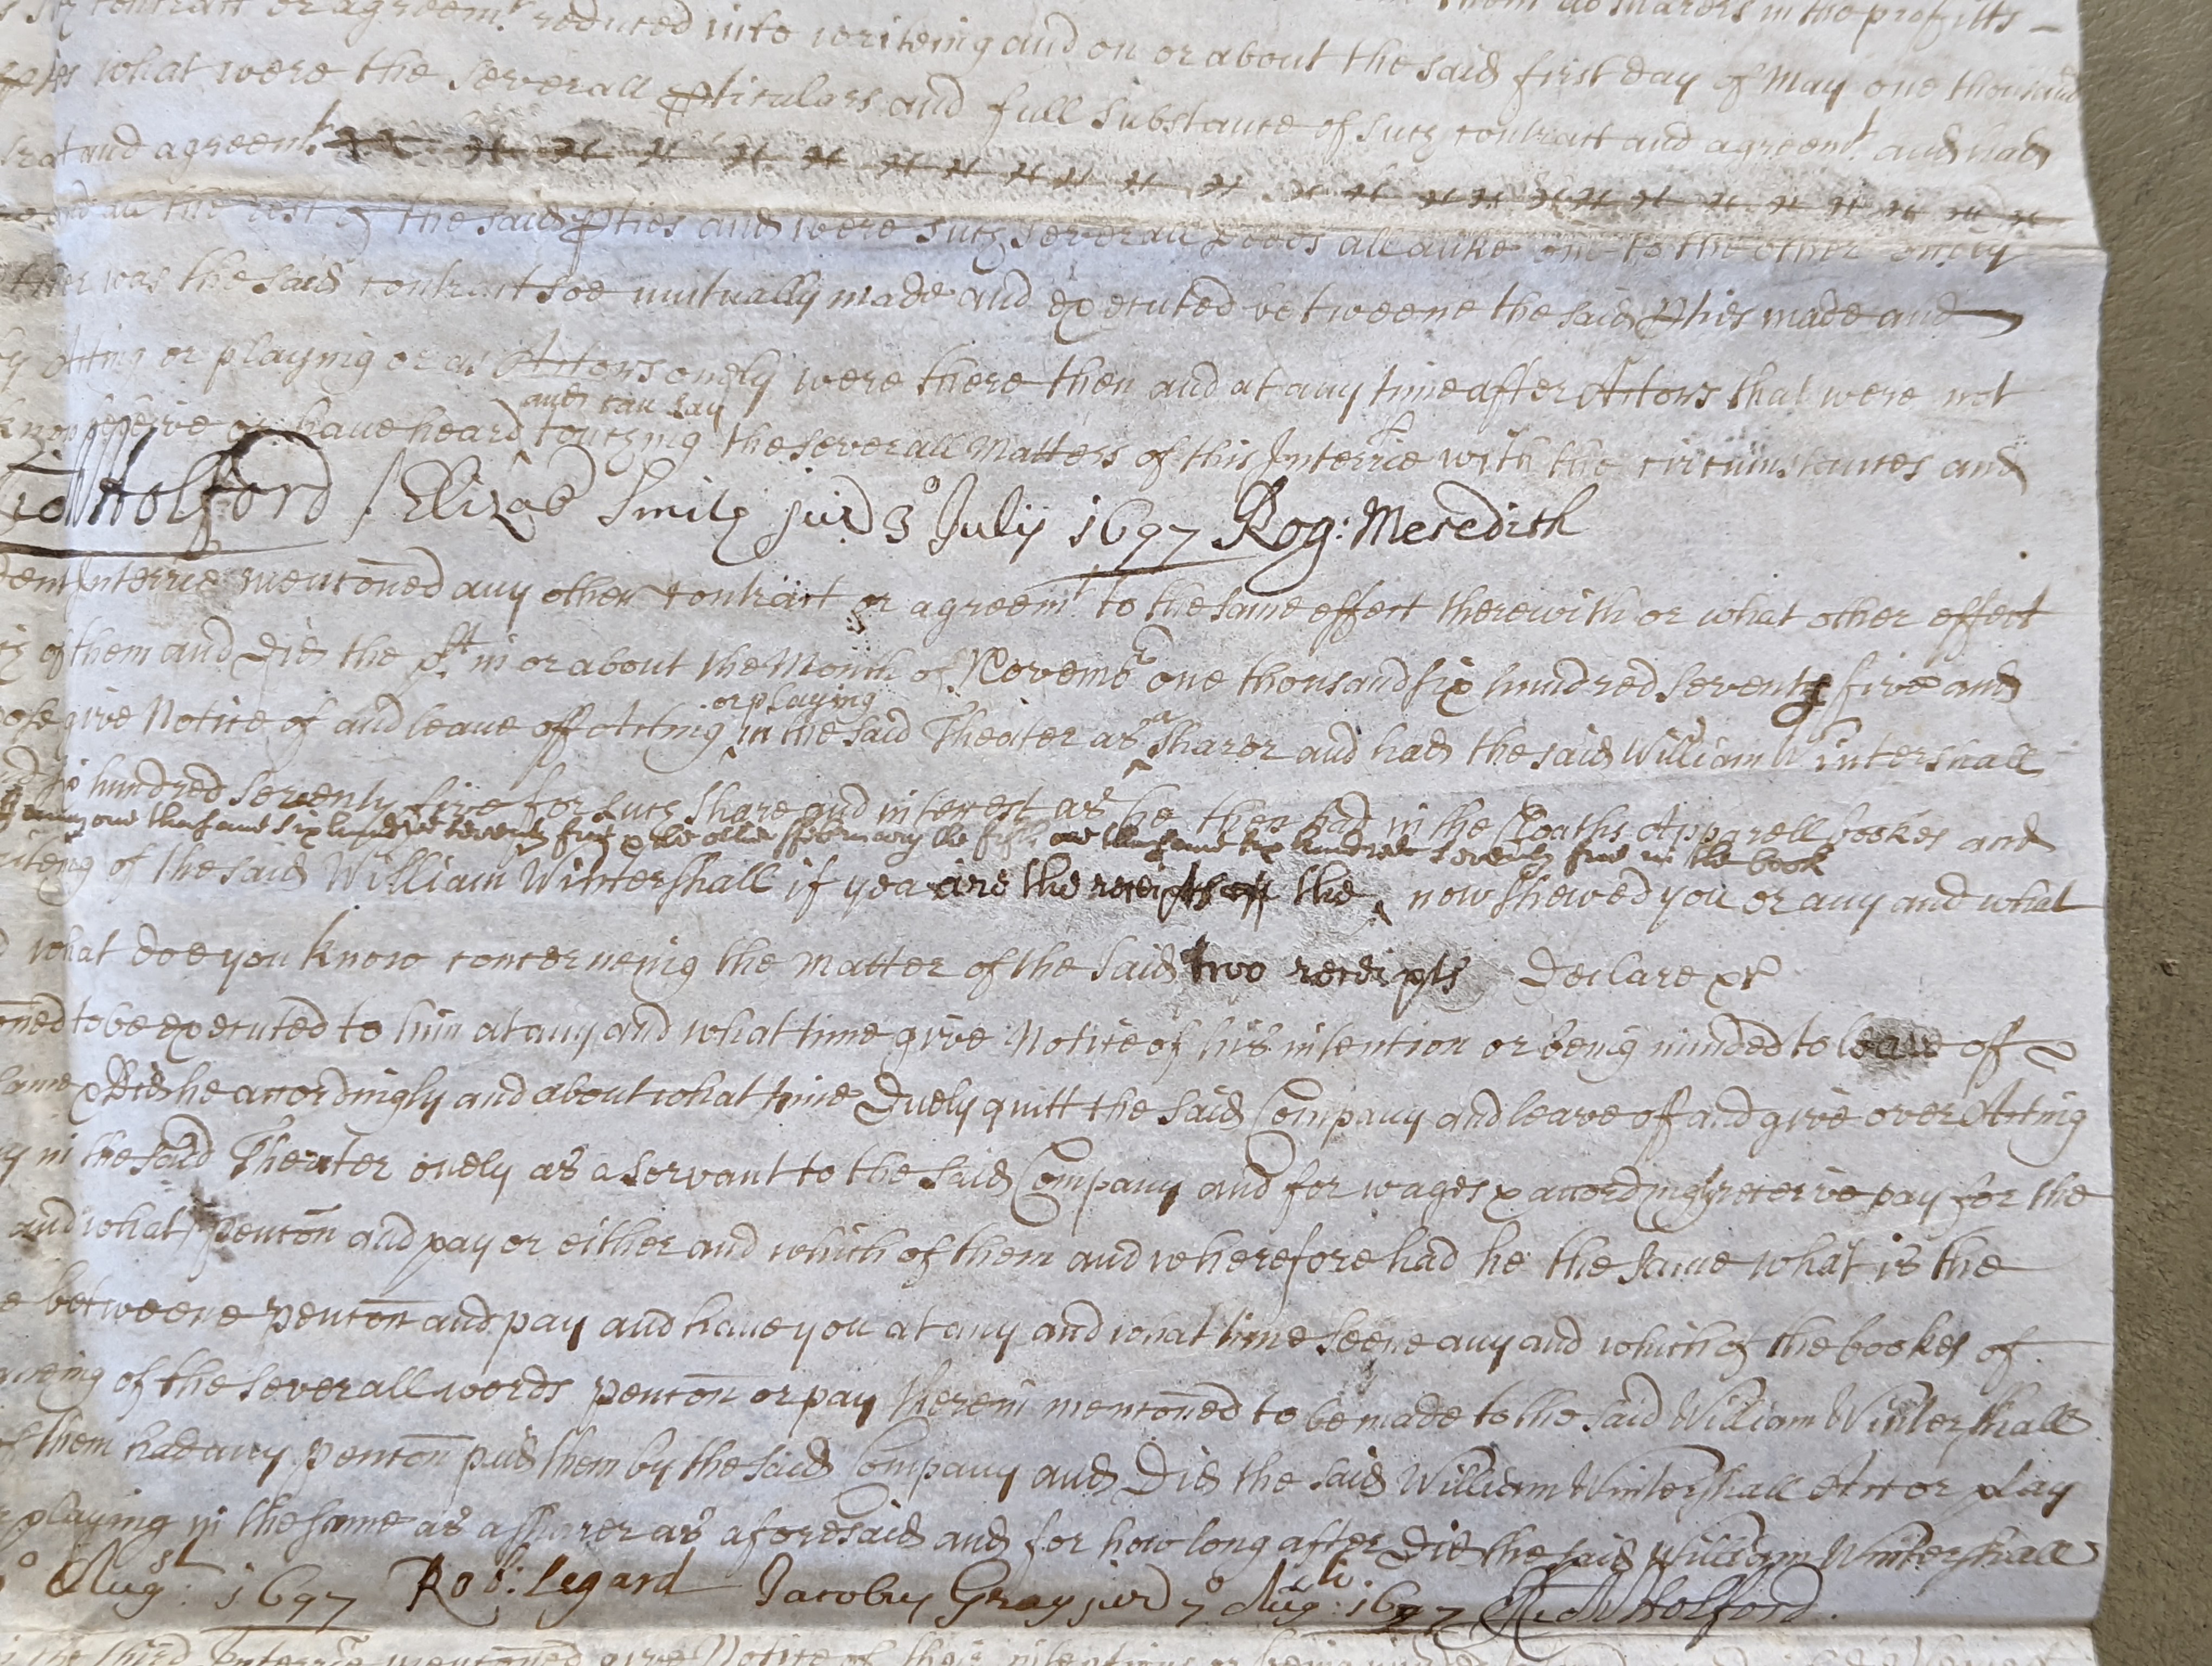 contract or agreemt. reduced into writeing and on or about the said first day of May one thousand
what were the severall pticulars and full substance of such contract and agreemt. and had
and agreemt.
and all the rest of the said pties and were such severall Deeds all alike one to the other onely
was the said contract soe mutually made and executed betweene the said pties made and
Acting or playing or as Actors onely were there then and at any time after Actors that were not
and can say
or have heard touching the severall Matters of this Interrie with the circumstances and
Holford / Elizab Smith jur 3o July 1697 Rog: Meredith
Interrie menconed any other contract or agreemt to the same effect therewith or what other effect
of them and did the plt in or about the Month of Novembr one thousand six hundred seventy five and
or playing
give Notice of and leave off Acting in the said Theater as a sharer and had the said William Wintershall
hundred seventy five for such share and interest as he then had in the Cloaths Apparell bookes and
one thousand six hundred seventy five & the other ffebruary the first one thousand six hundred seventy five in the book
of the said William Wintershall if yea are the receipts off the now shewed you or any and what
what doe you know concerneing the Matter of the said two receipts Declare &c
to be executed to him at any and what time give Notice of his intention or being minded to leave off
& Did he accordingly and about what time Duely quitt the said Company and leave off and give over Acting
in the said Theater onely as a servant to the said Company and for wages & accordingly receive pay for the
and what pencon and pay or either and which of them and wherefore had he the same what is the
betweene pencon and pay and have you at any and what time seene any and which of the bookes of
of the severall words pencon or pay therein menconed to be made to the said William Wintershall
of them had any pencon paid them by the said Company and Did the said William Wintershall Act or play
playing in the same as a sharer as aforesaid and for how long after Did the said William Wintershall
Augst: 1697 Rob: Legard Jacobus Gray jur 7o Augti: 1697 Rich Holford.
the third Interrie menconed give Notice of their intentions or being